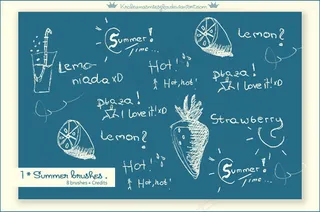 Summer!
Time...
Lemon?
Lemo-
niada xD
Hot!
Hot, hot!
plaza!
I love it! xD
plaza!
I love it! xD
Lemon?
Strawberry
Hot!
Hot, hot!
Summer!
Time...
1* Summer brushes.
8 brushes + Credits